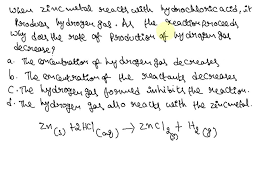 when zinc metal reacts with hydrochloric acid, it
produces hydrogen gas. As the reaction proceeds
why does the rate of production of hydrogen gas
decrease?
a. The concentration of hydrogen gas decreases
b. The concentration of the reactants decreases
c. The hydrogen gas formed inhibits the reaction.
d. The hydrogen gas also reacts with the zinc metal.
Zn(s) + 2HCl(aq) → ZnCl2(s) + H2(g)